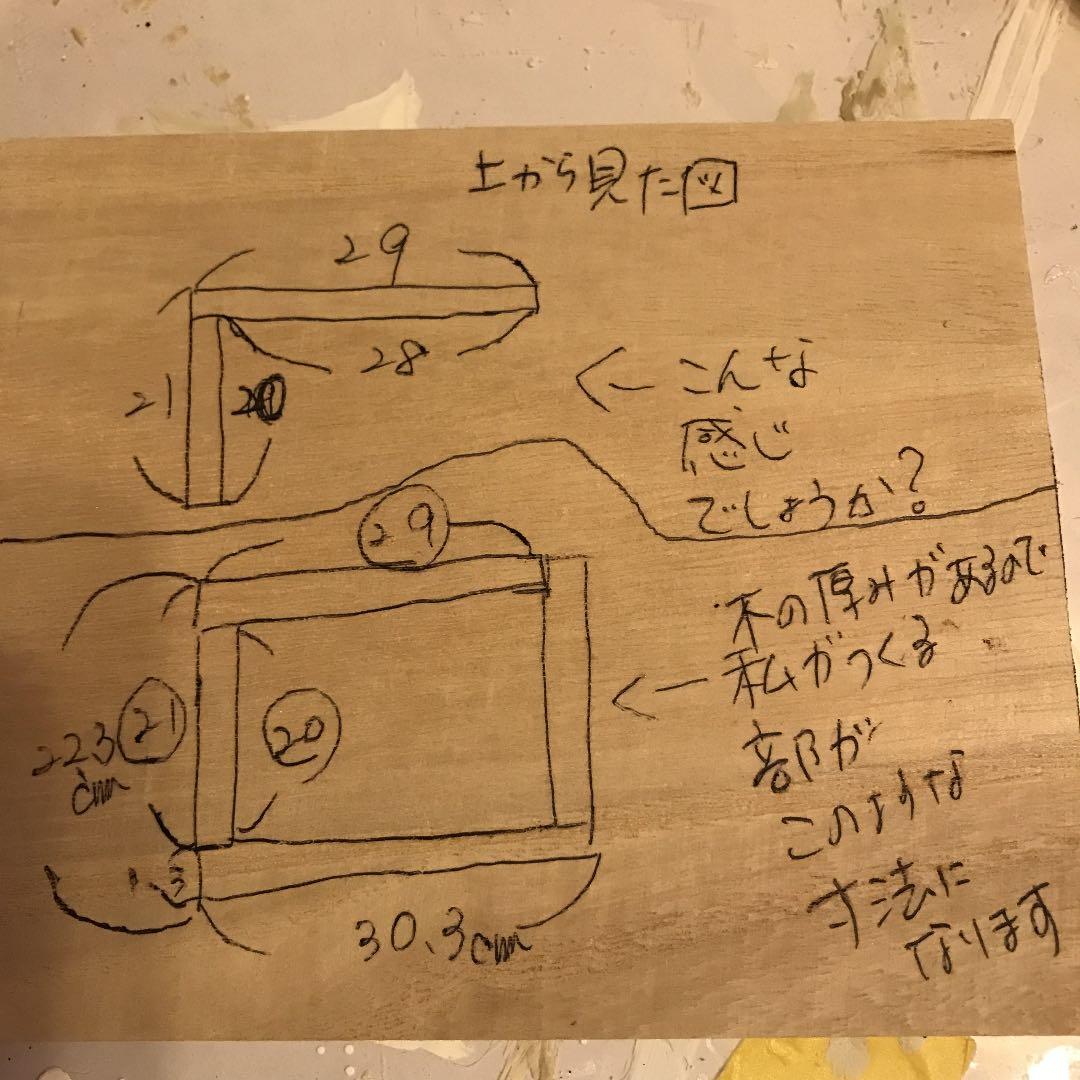 上から見た図
29
28
21
20
←こんな
感じ
でしょうか?
29
木の厚みがあるので
←私がつくる
部が
このような
寸法に
なります
22.3
cm
21
20
1.3
30.3cm